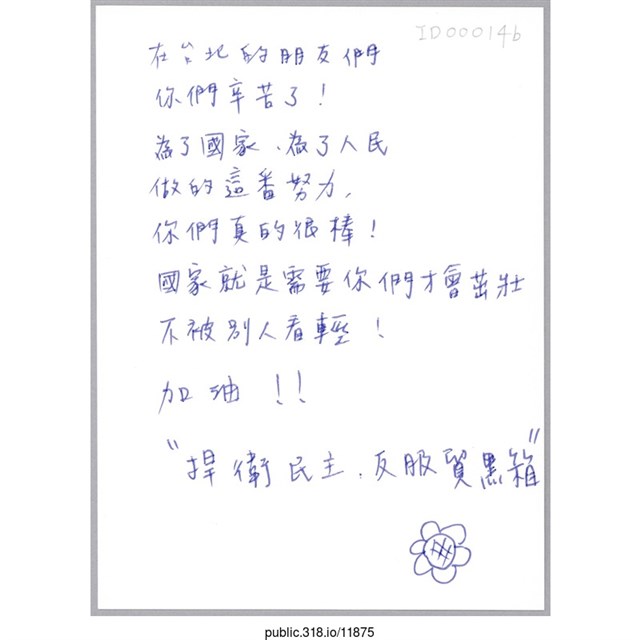 ID00014b
在台北的朋友們
你們辛苦了!
為了國家、為了人民
做的這番努力,
你們真的很棒!
國家就是需要你們才會茁壯
不被別人看輕!
加油!!
"捍衛民主、反服貿黑箱"
public.318.io/11875